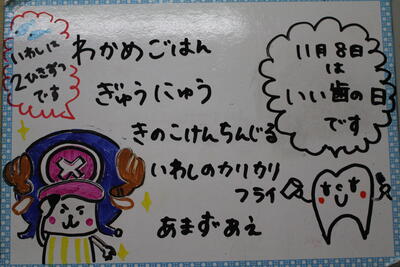 いわしは
2ひきずつ
です
わかめごはん
ぎゅうにゅう
きのこけんちんじる
いわしのカリカリ
フライ
あまずあえ
11月8日
は
いい歯の日
です